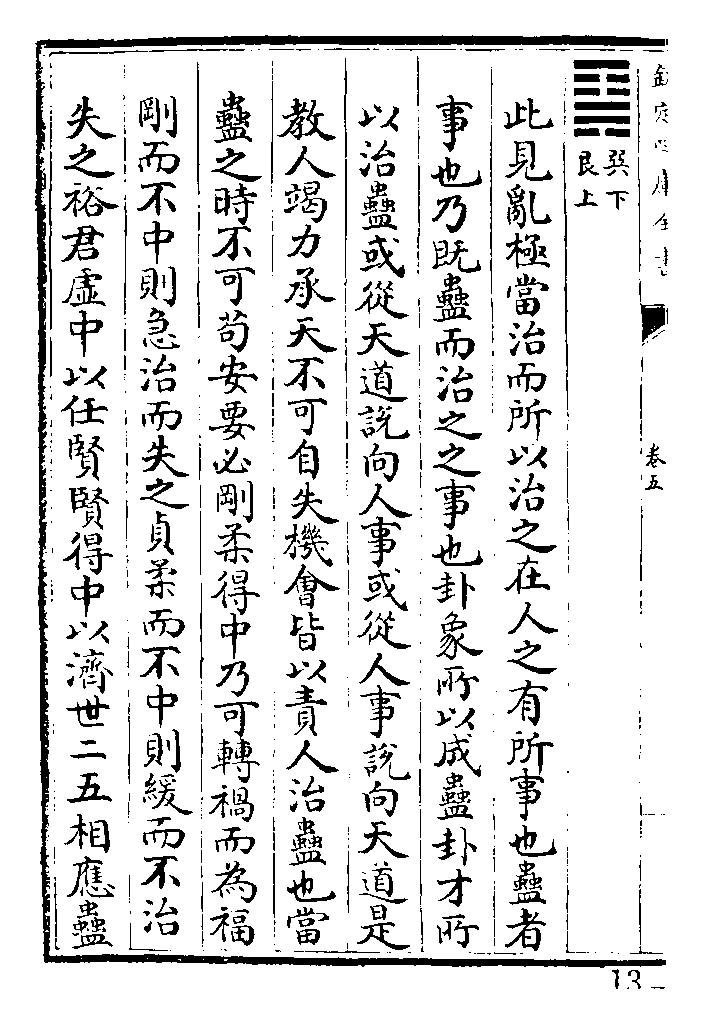 欽定四庫全書
卷五
巽下
艮上
此見亂極當治而所以治之在人之有所事也蠱者
事也乃既蠱而治之之事也卦象所以成蠱卦才所
以治蠱或從天道說向人事或從人事說向天道是
教人竭力承天不可自失機會皆以責人治蠱也當
蠱之時不可茍安要必剛柔得中乃可轉禍而為福
剛而不中則急治而失之貞柔而不中則緩而不治
失之裕君虛中以任賢賢得中以濟世二五相應蠱
13